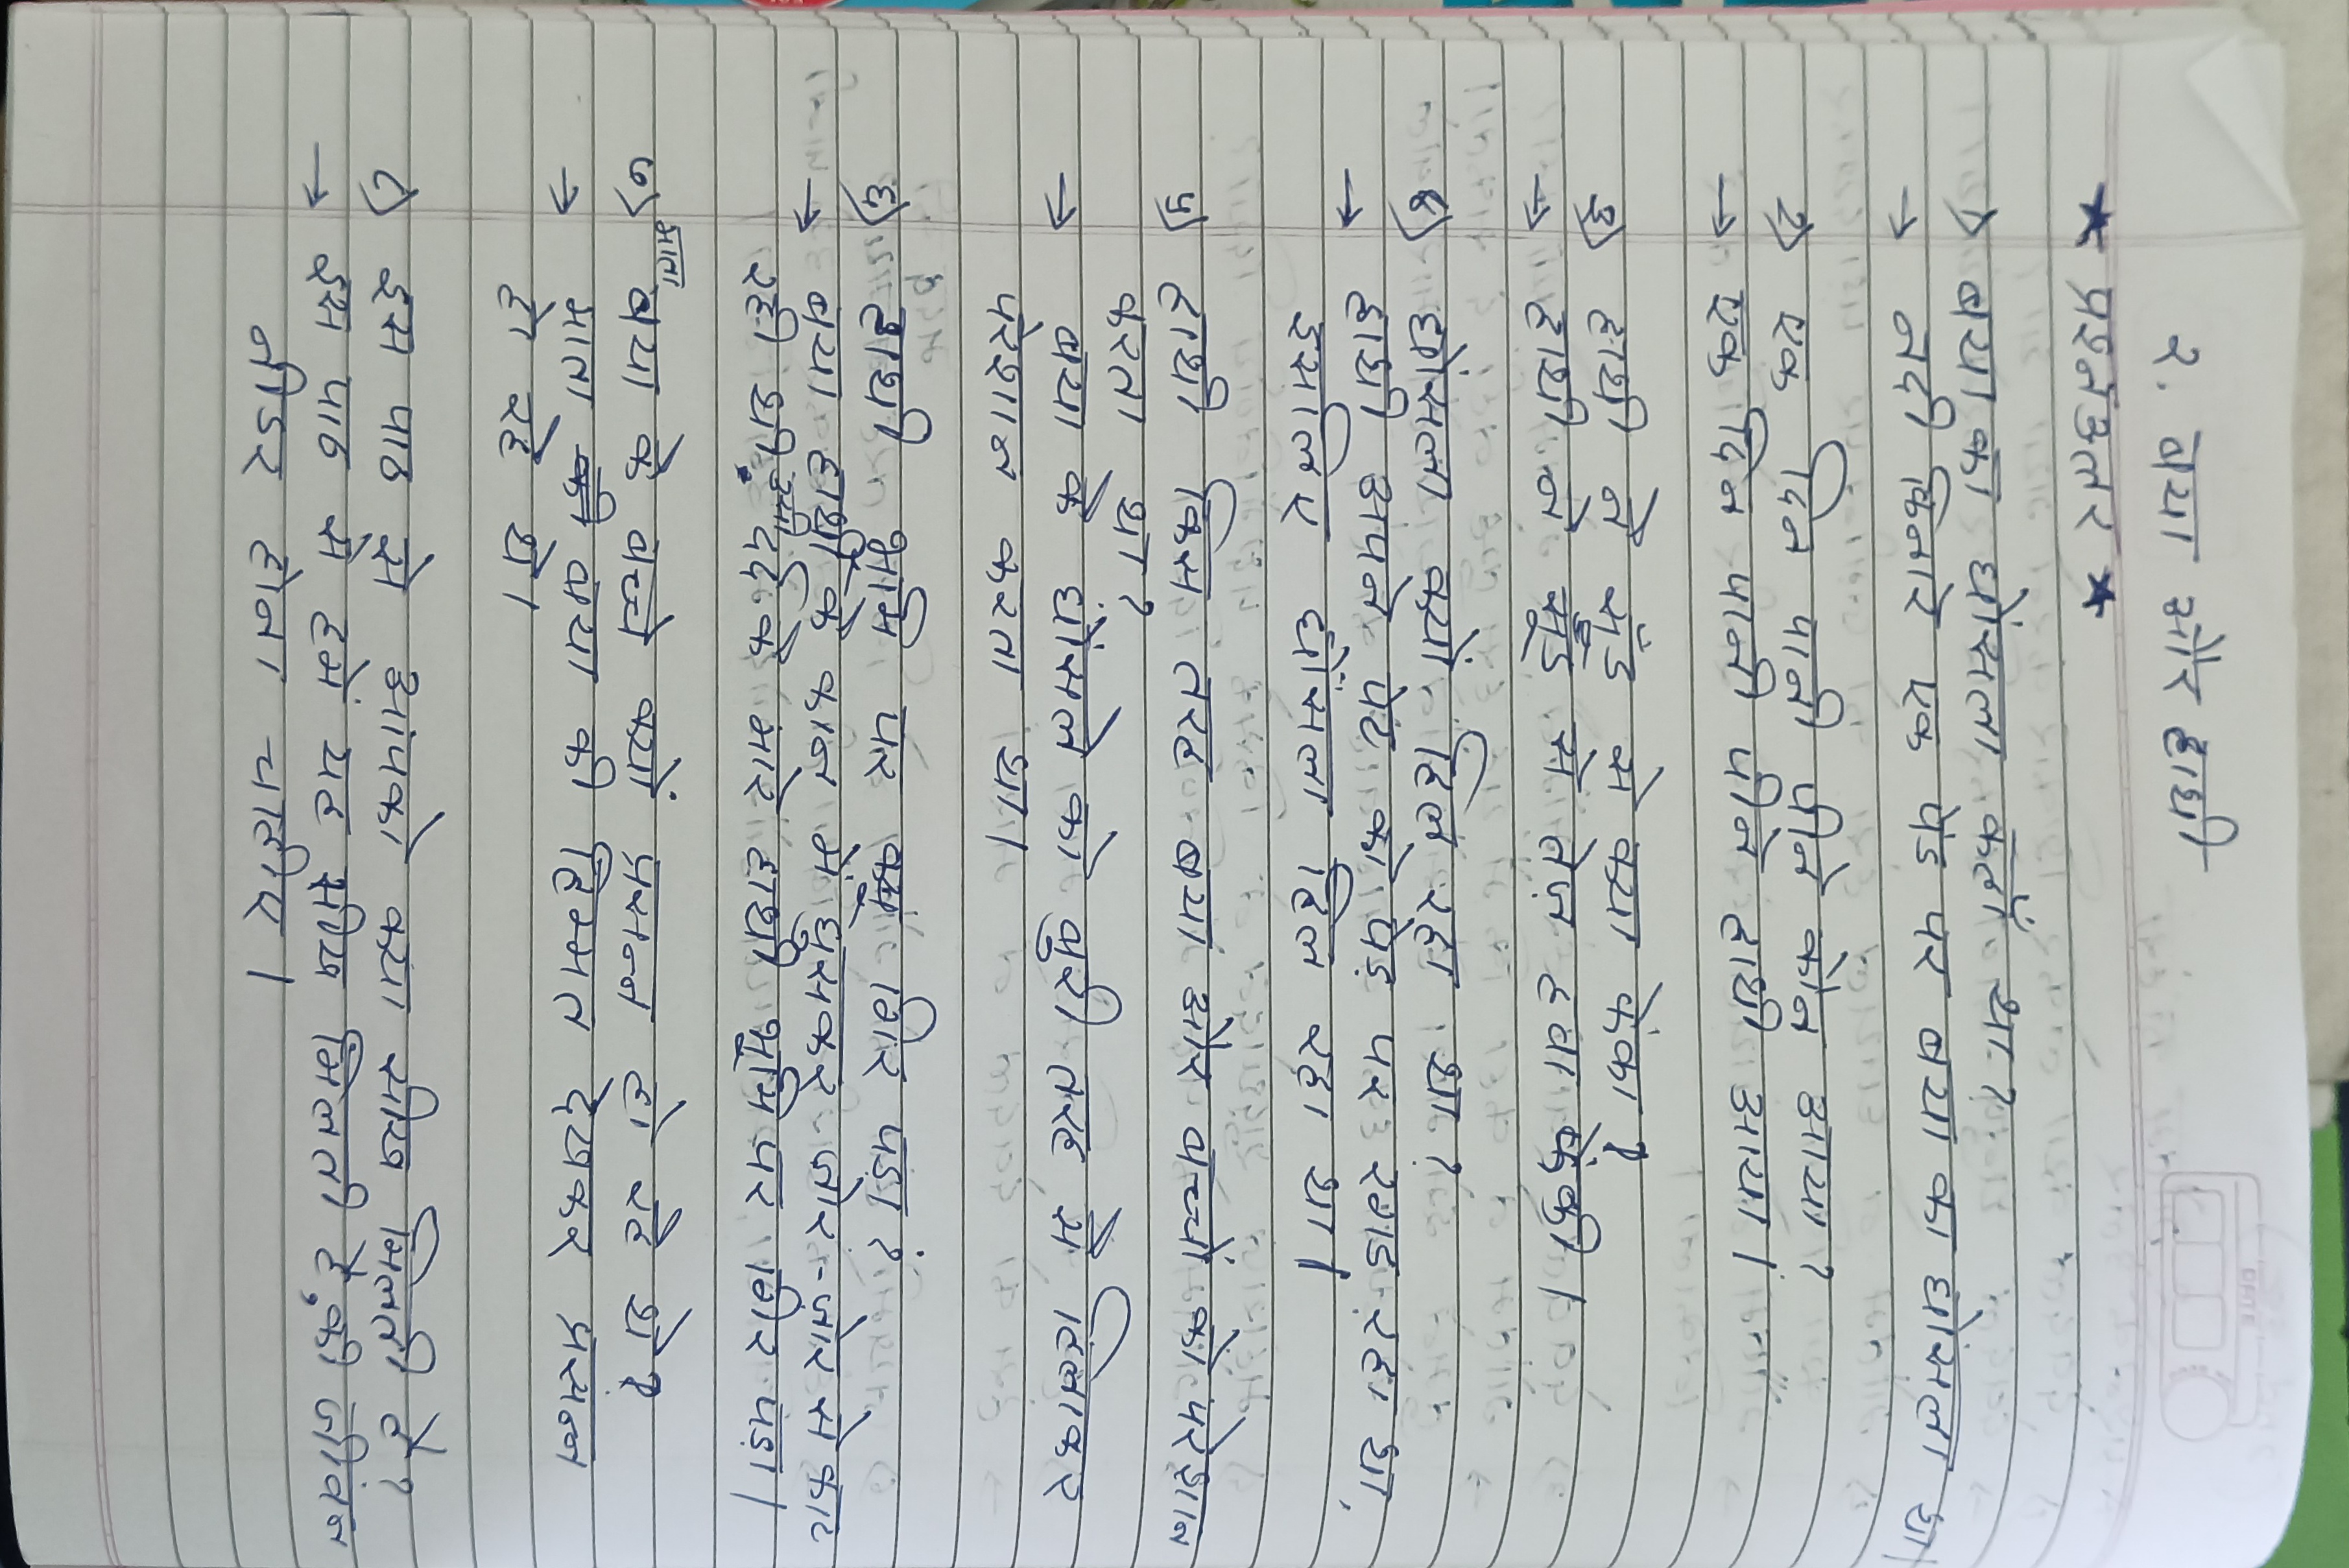 २. बया और हाथी
★ प्रश्नोउत्तर ★
१) बया का घोंसला कहाँ था?
→ नदी किनारे एक पेड पर बया का घोंसला था।
२) एक दिन पानी पीने कौन आया?
→ एक दिन पानी पीने हाथी आया।
३) हाथी ने सूंड से क्या फेंका?
→ हाथी ने सूंड से तेज़ हवा फेंकी।
४) घोंसला क्यों हिल रहा था?
→ हाथी अपने पेट को पेड़ पर रगड रहा था,
इसलिए घोंसला हिल रहा था।
५) हाथी किस तरह बया और बच्चों को परेशान
करता था?
→ बया के घोंसले को बुरी तरह से हिलाकर
परेशान करता था।
६) हाथी भूमि पर क्यूँ गिर पड़ा?
→ बया हाथी के कान में घुसकर जोर-जोर से काट
रही थी, उसी दर्द के मारे हाथी भूमि पर गिर पड़ा।
७) माता बया के बच्चे क्यों प्रसन्न हो रहे थे?
→ माता बया की हिम्मत देखकर प्रसन्न
हो रहे थे।
८) इस पाठ से आपको क्या सीख मिलती है?
→ इस पाठ से हमें यह सीख मिलती है, की जीवन
नीडर होना चाहीए।